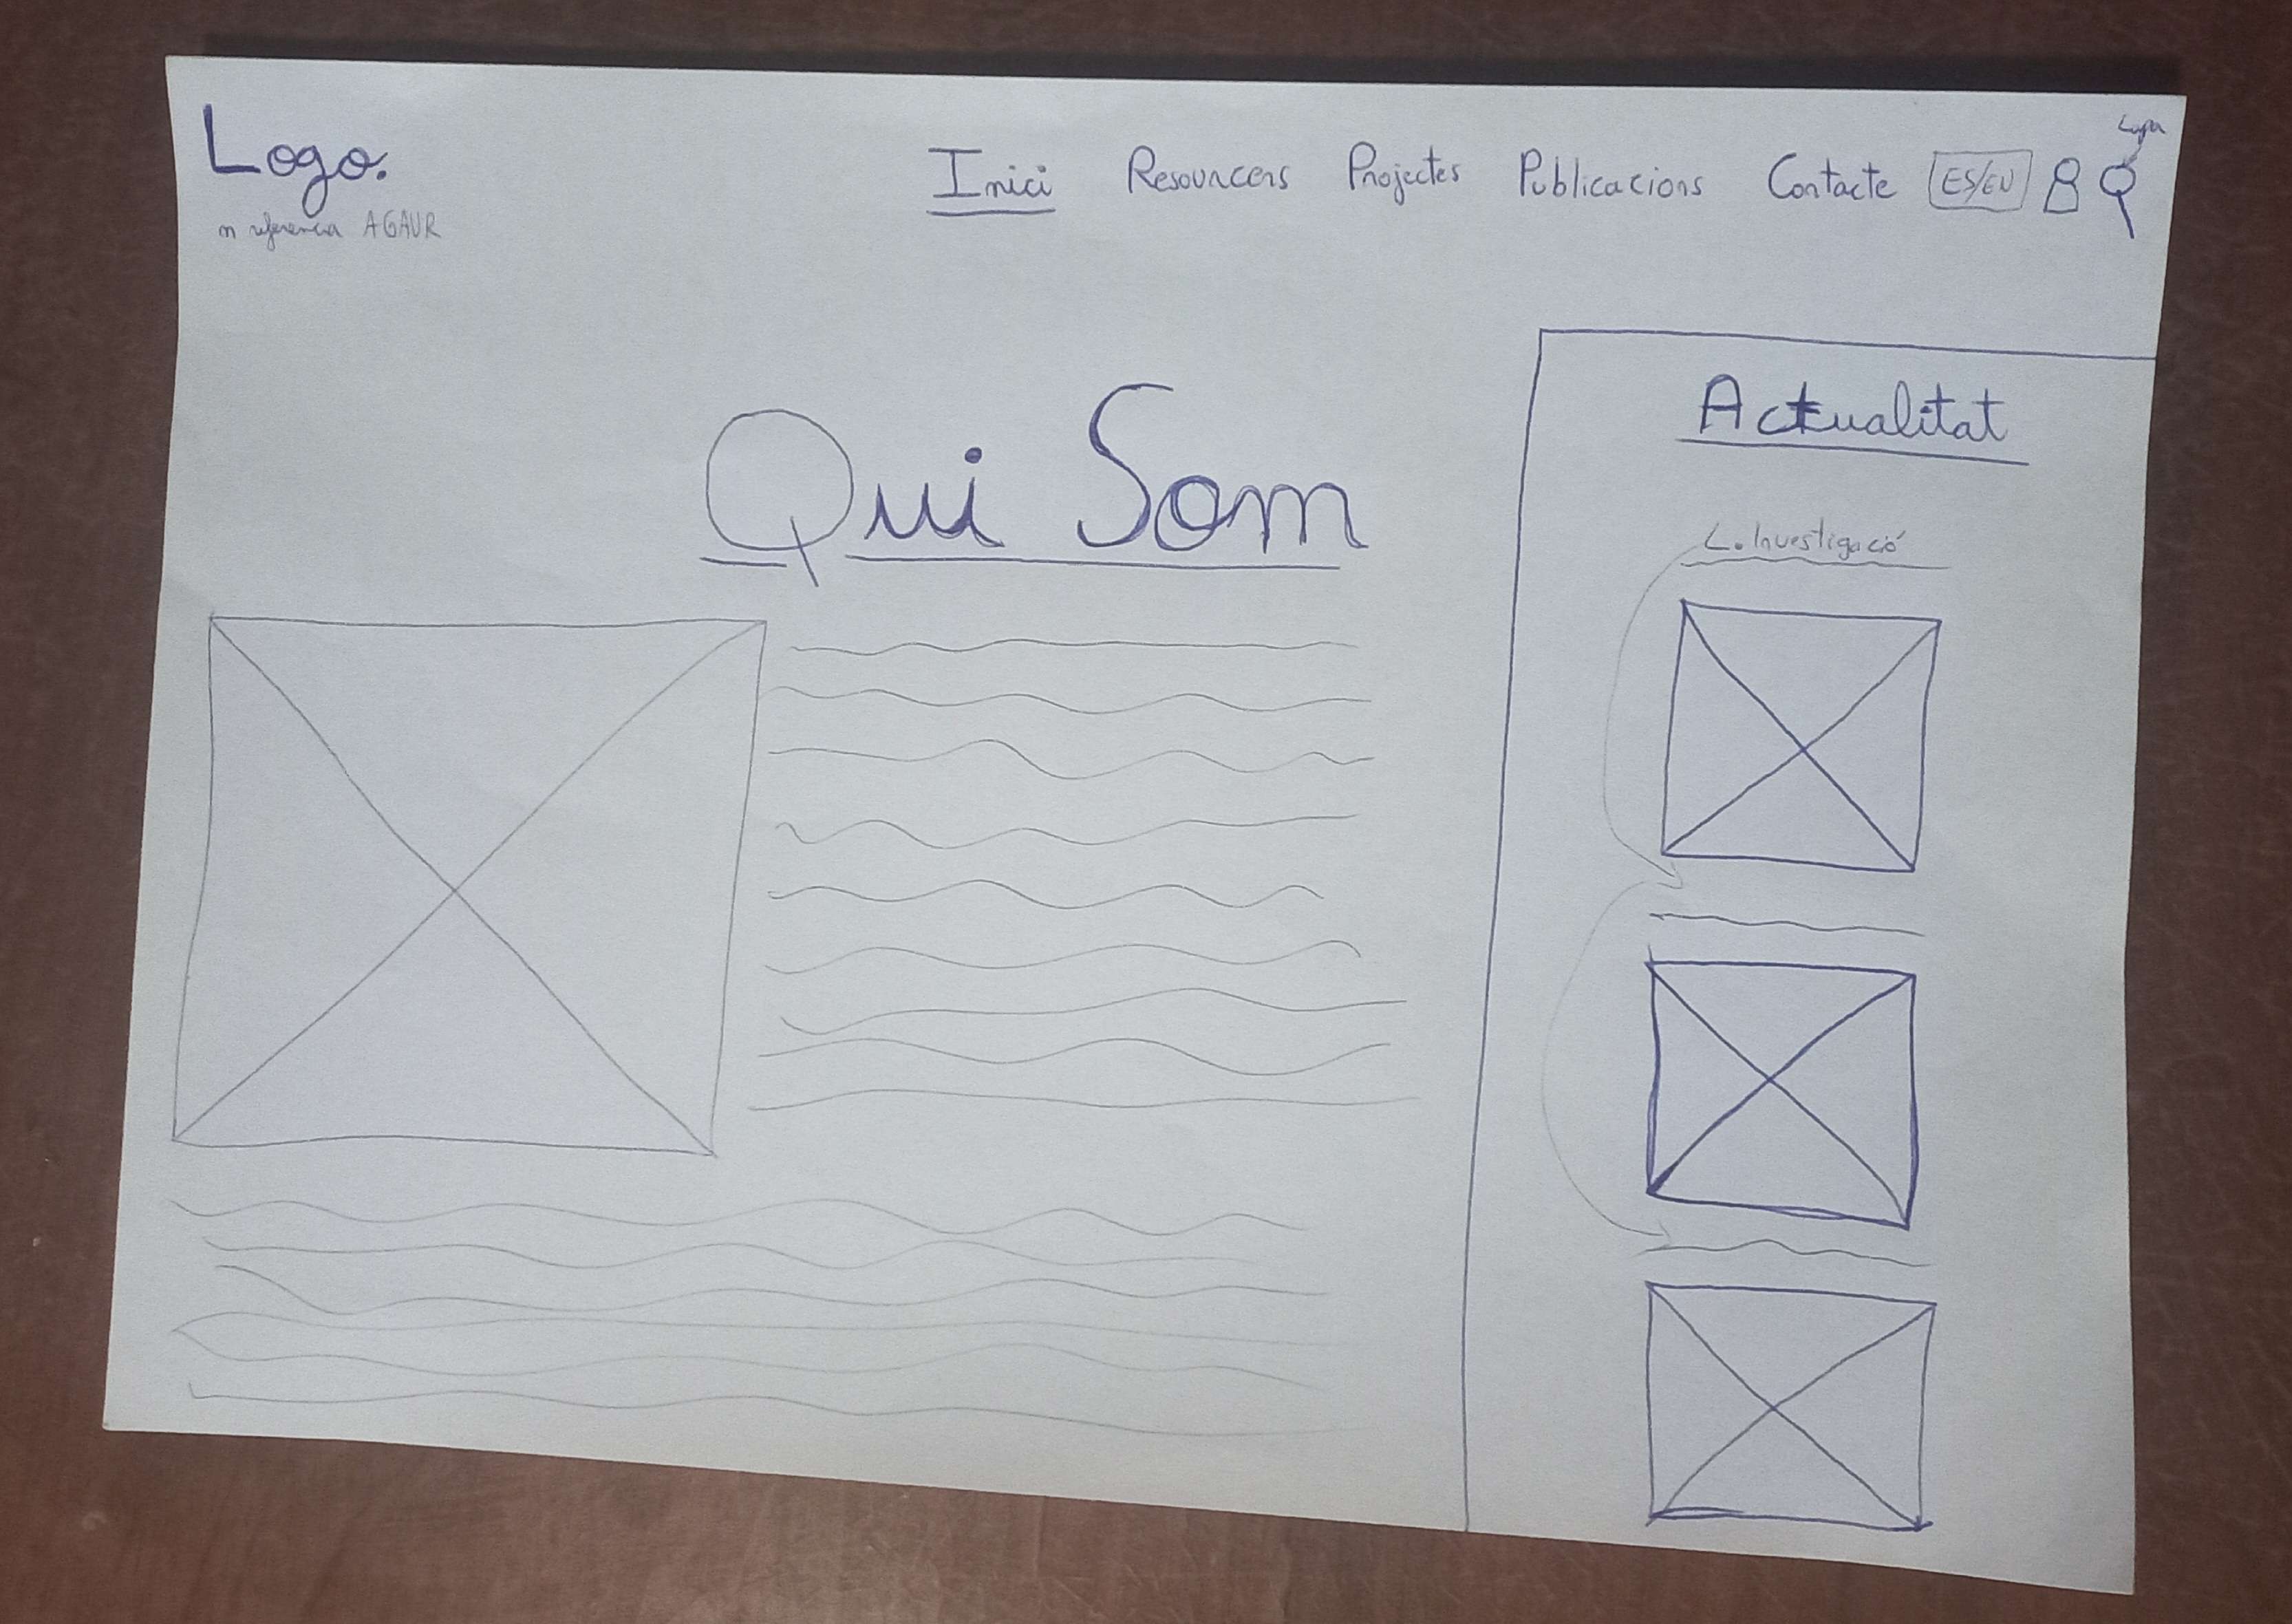 Logo.
nº referencia AGAUR
Inici Resourcers Projectes Publicacions Contacte ES/EN
Lupa
Qui Som
Actualitat
L. Investigació